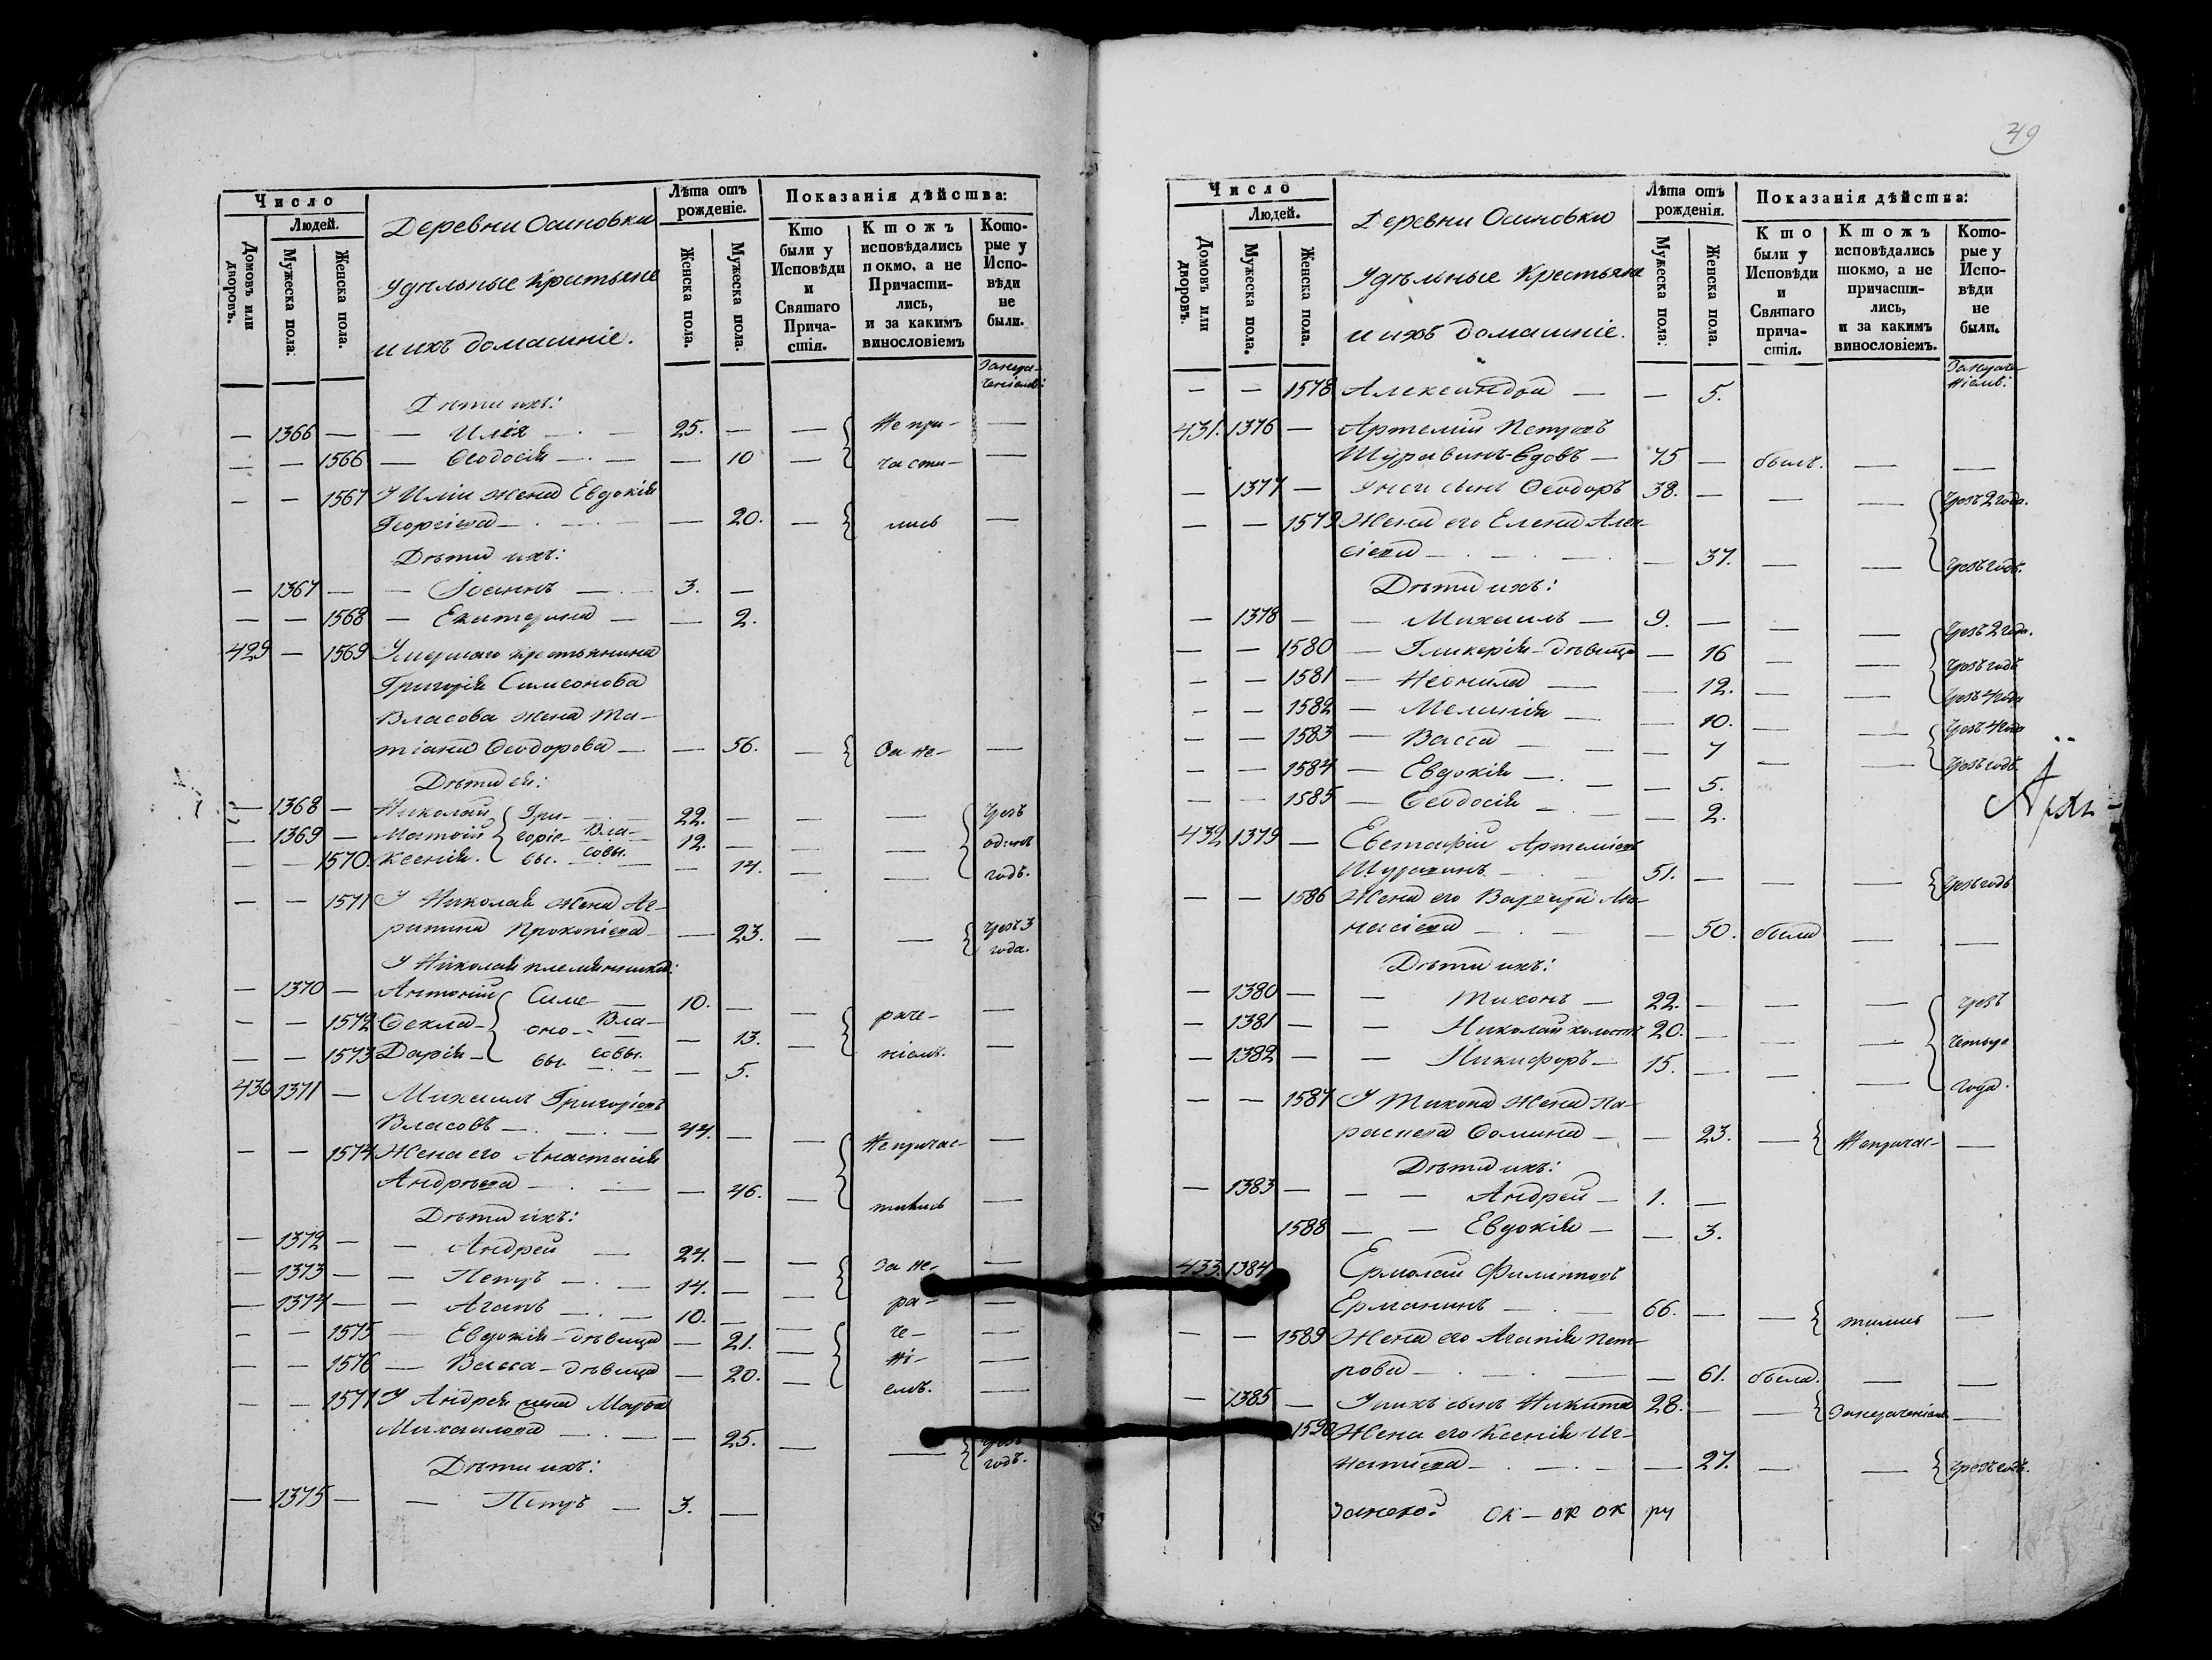 Число
Людей.
Домовъ или дворовъ.
Мужеска пола.
Женска пола.
Деревни Осиновки
удѣльные Кретьяне
и ихъ домашніе.
Лѣта отъ рожденіе.
Женска пола.
Мужеска пола.
Показанія дѣйства:
Кто были у Исповѣди и Святаго Причастія.
Ктожъ исповѣдались покмо, а не Причастились, и за какимъ винословіемъ
Которые у Исповѣди не были.
Дѣти ихъ:
— 1366 — — Илія — 25. — — Не при- —
— — 1566 — Ѳеодосія — — 10 — части- —
— — 1567 У Иліи жена Евдокія
Георгіева — — 20. — лись —
Дѣти ихъ:
— 1367 — — Іоаннъ — 3. —
— — 1568 — Екатерина — — 2.
429 — 1569 Умершаго крестьянина
Григорія Симеонова
Власова жена Та-
тіана Ѳеодорова — — 56. — За не- —
Дѣти ея:
— 1368 — Николай Гри- 22. — — — Чрезъ
— 1369 — Матѳій горіе- Вла- 12. — — — одинъ
— — 1570. Ксенія. вы. совы. — 14. — — годъ.
— — 1571 У Николая жена Аг-
рипина Прокопіева — 23. — — чрезъ 3
года.
У Николая племянники:
— 1370 — Антоній Симе- — 10. — — раче- —
— — 1572 Ѳекла — оно- Вла- — 13. — ніемъ. —
— — 1573 Дарія — вы. совы. — 5.
430 1371 — Михаилъ Григоріевъ
Власовъ — 44. — — Непричас- —
— — 1574 Жена его Анастасія
Андрѣева — — 46. — тились —
Дѣти ихъ:
— 1372 — — Андрей — 24. — — За не- —
— 1373 — — Петръ — 14. — — ра- —
— 1374 — — Агапъ — 10. — — че- —
— — 1575 — Евдокія — дѣвица — 21. — ні- —
— — 1576 — Васса — дѣвица — 20. — емъ. —
— — 1577 У Андрея жена Марѳа
Михаилова — — 25. — — Чрезъ
годъ.
Дѣти ихъ:
— 1375 — — Петръ — 3. —
49
Число
Людей.
Домовъ или дворовъ.
Мужеска пола.
Женска пола.
Деревни Осиновки
Удѣльные Крестьяне
и ихъ домашніе.
Лѣта отъ рожденія.
Мужеска пола:
Женска пола.
Показанія дѣйства:
Кто были у Исповѣди и Святаго причастія.
Ктожъ исповѣдались токмо, а не причастились, и за какимъ винословіемъ.
Которые у Исповѣди не были.
— — 1578 Александра — — 5.
431. 1376 — Артемій Петровъ
Шуравинъ-вдовъ — 75 — былъ. — —
— 1377 — У него сынъ Ѳеодоръ 38. — — — Чрезъ 2 года.
— — 1579 Жена его Елена Алек-
сіева — — 37. — — Чрезъ годъ.
Дѣти ихъ:
— 1378 — — Михаилъ — 9. — — — Чрезъ 2 года.
— — 1580 — Гликерія — дѣвица — 16 — — Чрезъ годъ
— — 1581 — Неонила — — 12. — — Чрезъ 4 года
— — 1582 — Меланія — — 10. — — Чрезъ 4 года
— — 1583 — Васса — — 7 — — Чрезъ годъ.
— — 1584 — Евдокія — — 5.
— — 1585 — Ѳеодосія — — 2.
432 1379 — Евстафій Артеміевъ
Шуравинъ — 51. — — — Чрезъ годъ
— — 1586 Жена его Варвара Аѳа-
насіева — — 50. была — —
Дѣти ихъ:
— 1380 — — Тихонъ — 22. — — — чрезъ
— 1381 — — Николай холостъ 20. — — — четыре
— 1382 — — Никифоръ — 15. — — — года.
— — 1587 У Тихона жена Па-
раскева Ѳомина — — 23. — Непричас- —
Дѣти ихъ:
— 1383 — — — Андрей — 1. —
1588 — — Евдокія — — 3.
433. 1384 Ермолай Филипповъ
Ерманинъ — 66. — — тились —
— — 1589 Жена его Агапія Пет-
рова — — 61. была. — —
— 1385 — У нихъ сынъ Никита 28. — — Занераченіемъ —
1590 Жена его Ксенія Иг-
натіева — — 27. — — Чрезъ годъ.